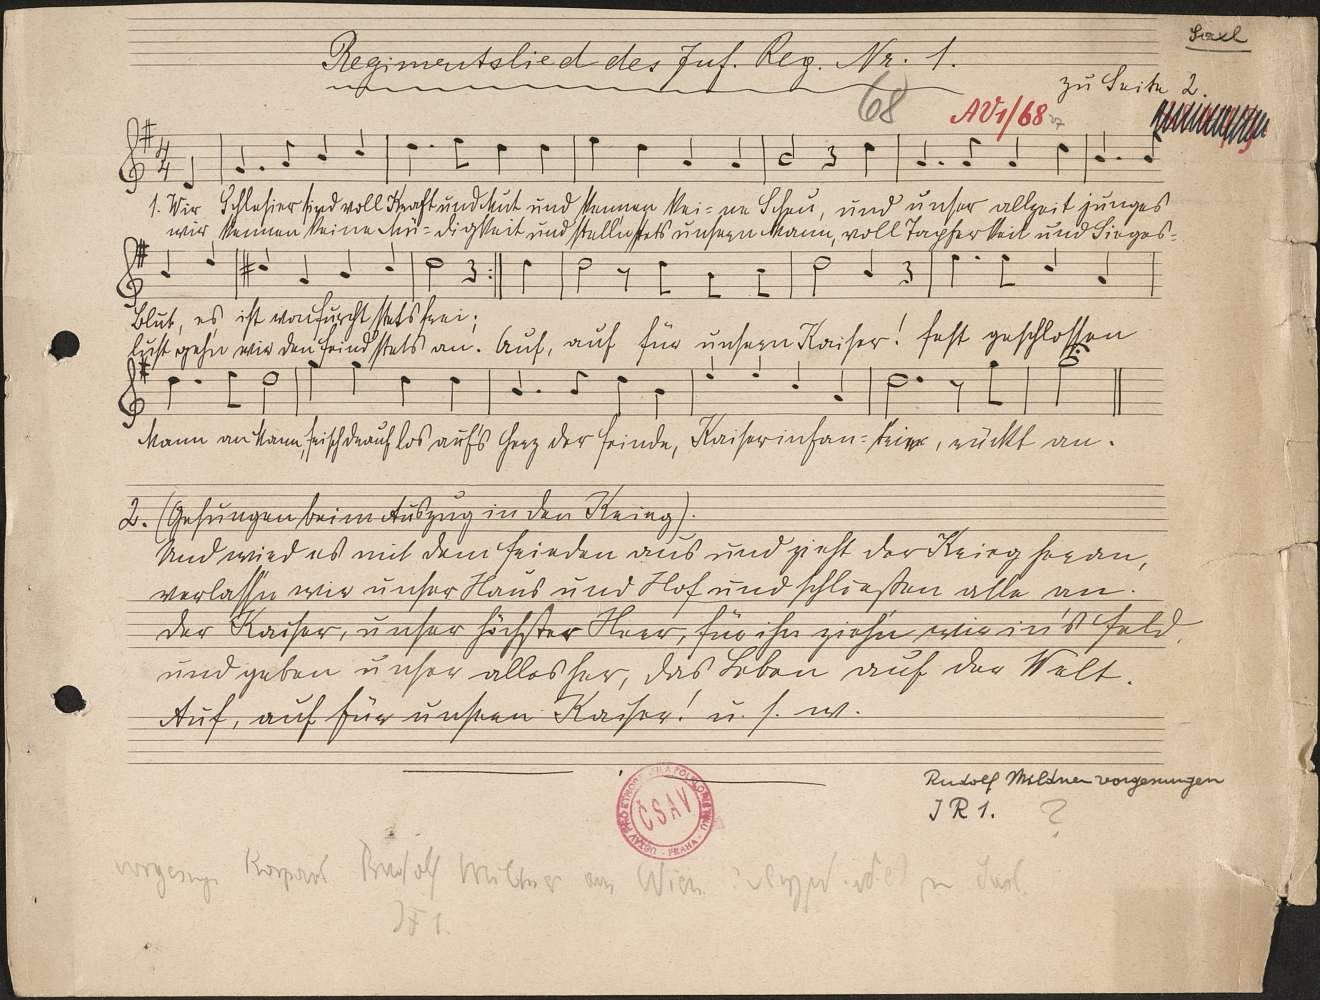 Saxl
Regimentslied des Inf. Reg. Nr. 1.
zu Seite 2.
68
AV1/68
4
4
1. Wir Schlesier sind voll Kraft und Mut und kennen kei=ne Scheu, und unser allzeit junges
wir kennen keine Mü=digkeit und stell'n stets unsern Mann, voll Tapferkeit und Sieges=
Blut, es ist von Furcht stets frei;
lust gehn wir den Feind stets an. Auf, auf für unsern Kaiser! fest geschlossen
Mann an Mann, frisch drauf los auf's Herz der Feinde, Kaiserinfan=terie, rückt an.
2. (Gesungen beim Auszug in den Krieg).
Und wird es mit dem Frieden aus und zieht der Krieg heran,
verlass'n wir unser Haus und Hof und schließen alle an.
Der Kaiser, unser höchster Herr, für ihn zieh'n wir in's Feld,
und geben unser alles her, das Leben auf der Welt.
Auf, auf für unsern Kaiser! u. s. w.
ČSAV
PRAHA
Rudolf Mildner vorgesungen
IR 1.
?
Korporal Rudolf Mildner aus Wien
IR 1.